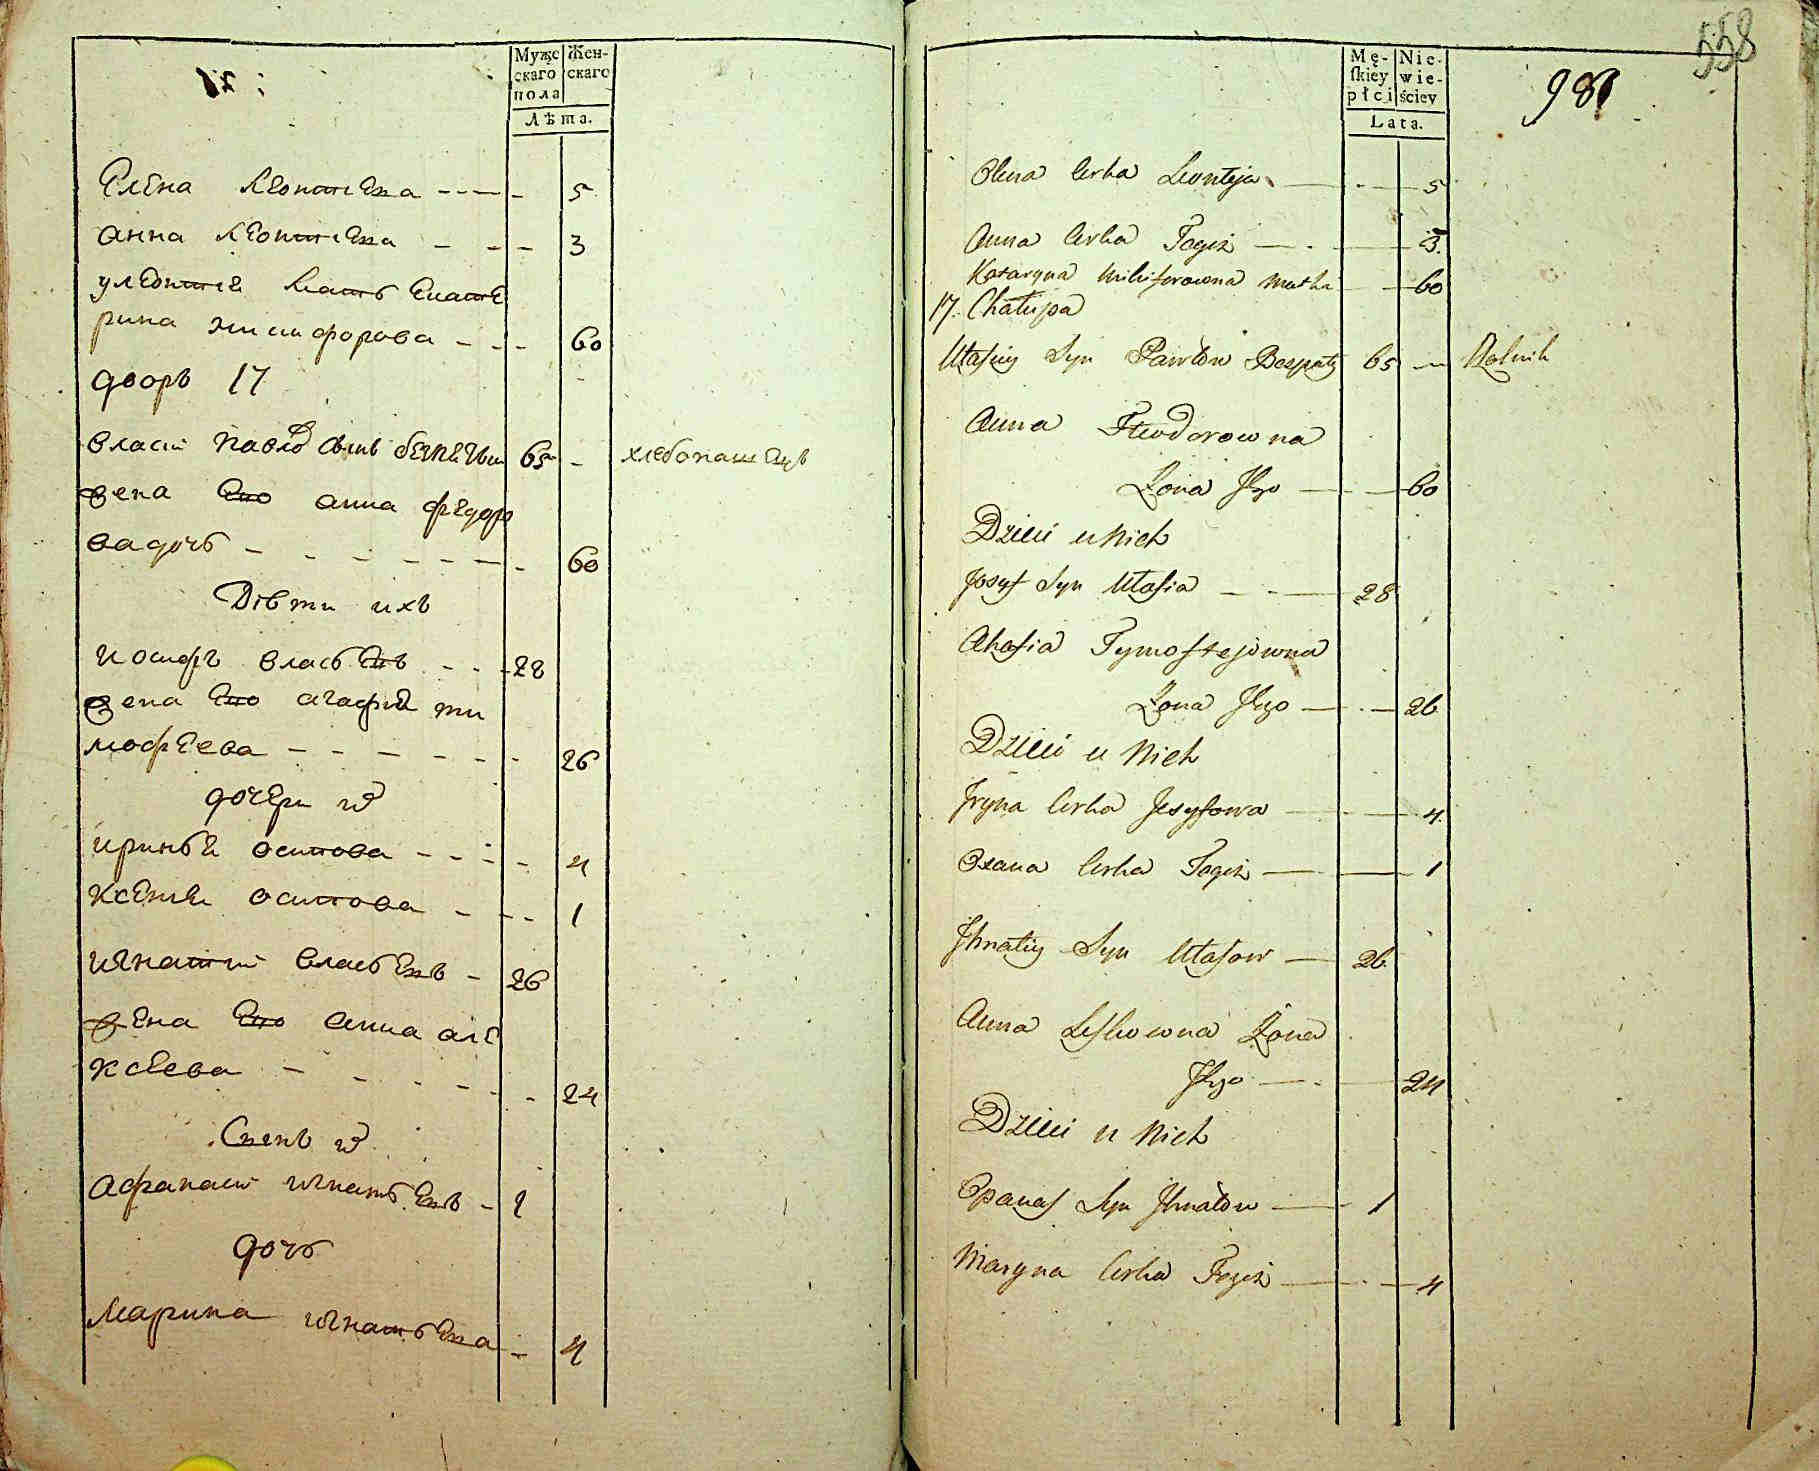 Мужс
каго
пола
Жен-
скаго
Лѣта.
Елена леонтиева 5
анна леонтиева 3
улеонтия мать екате
рина никифорова 60
дворъ 17
власи павловъ сынъ 65 хлебопашецъ
жена ево анна федоро
ва дочь 60
Дѣти ихъ
иосифъ власьевъ 28
жена ево агафия ти
мофеева 26
дочери их
иринья осипова 4
ксения осипова 1
игнатии власьевъ 26
жена ево анна але
ксеева 24
Сынъ их
афанаси игнатьевъ 1
дочь
марина игнатьева 4
558
Mę-
skiey
płci
Nie-
wie-
ściey
Lata.
98
Olena Corka Leonteja 5
Anna Corka Tegoż 3
Kataryna Nikiforowna Matka 60
17. Chałupa
Ułasiy Syn Pawłow 65 Rolnik
Anna Fteodorowna
Żona Jego 60
Dzieci u Nich
Josyf Syn Ułasia 28
Ahafia Tymofiejowna
Żona Jego 26
Dzieci u Nich
Jryna Corka Josyfowa 4
Oxana Corka Tegoż 1
Jhnatiy Syn Ułasow 26
Anna Leskowna Żona
Jego 24
Dzieci u Nich
Opanas Syn Jhnatow 1
Maryna Corka Tegoż 4